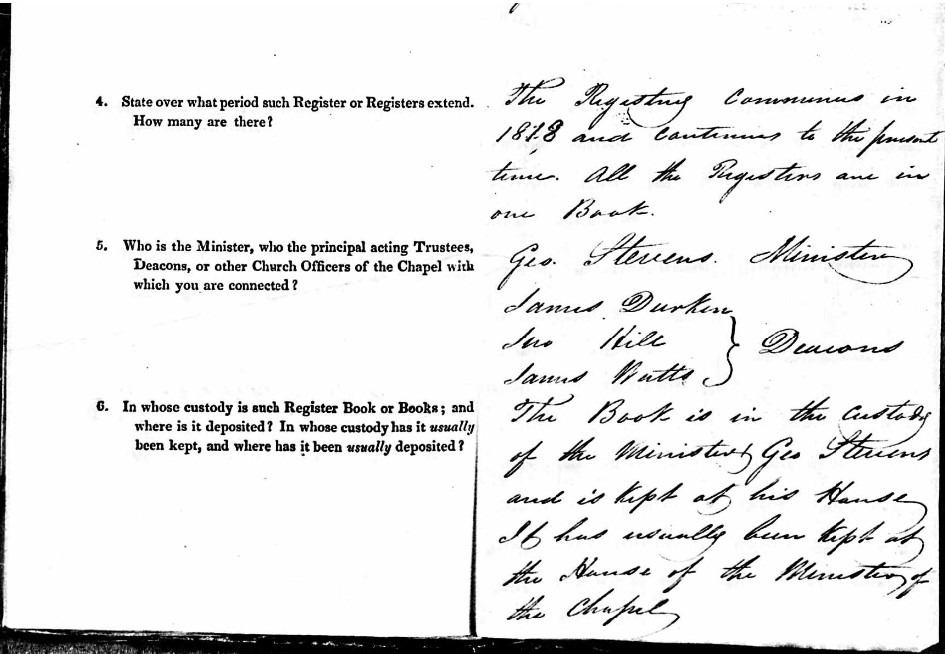 4. State over what period such Register or Registers extend.
How many are there?
The Registry Commences in
1818 and continues to the present
time. All the Registers are in
one Book.
5. Who is the Minister, who the principal acting Trustees,
Deacons, or other Church Officers of the Chapel with
which you are connected?
Geo. Stevens. Minister
James Durken
Jno Hill
James Watts
} Deacons
6. In whose custody is such Register Book or Books; and
where is it deposited? In whose custody has it usually
been kept, and where has it been usually deposited?
The Book is in the Custody
of the Minister Geo Stevens
and is kept at his House
It has usually been kept at
the House of the Minister of
the Chapel